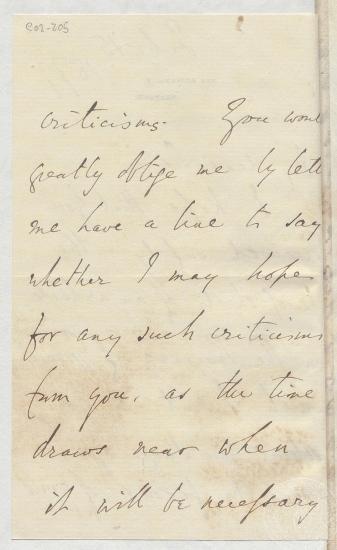 COR-205
criticisms. You woul
greatly oblige me by lett
me have a line to say
whether I may hope
for any such criticisms
from you, as the time
draws near when
it will be necessary